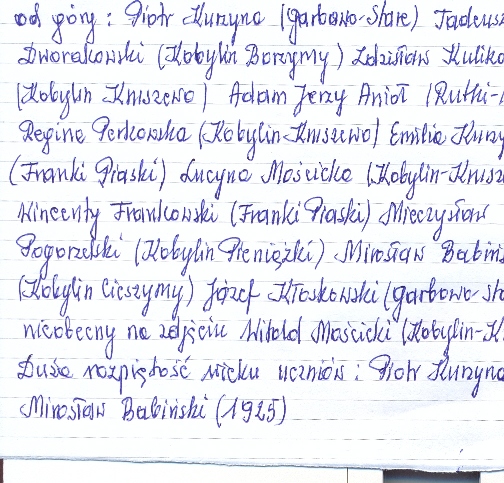 od góry: Piotr Kurzyna (Garbowo-Stare) Tadeusz
Dworakowski (Kobylin Borzymy) Zdzisław Kuliko
(Kobylin Kruszewo) Adam Jerzy Anioł (Rutki-
Regina Perkowska (Kobylin-Kruszewo) Emilia Kurzy
(Franki Piaski) Lucyna Mościcka (Kobylin-Krusz
Wincenty Frankowski (Franki Piaski) Mieczysław
Pogorzelski (Kobylin Pieniążki) Mirosław Babińs
(Kobylin Cieszymy) Józef Kłoskowski (Garbowo-sta
nieobecny na zdjęciu Witold Mościcki (Kobylin-K
Duża rozpiętość wieku uczniów: Piotr Kurzyna
Mirosław Babiński (1925)